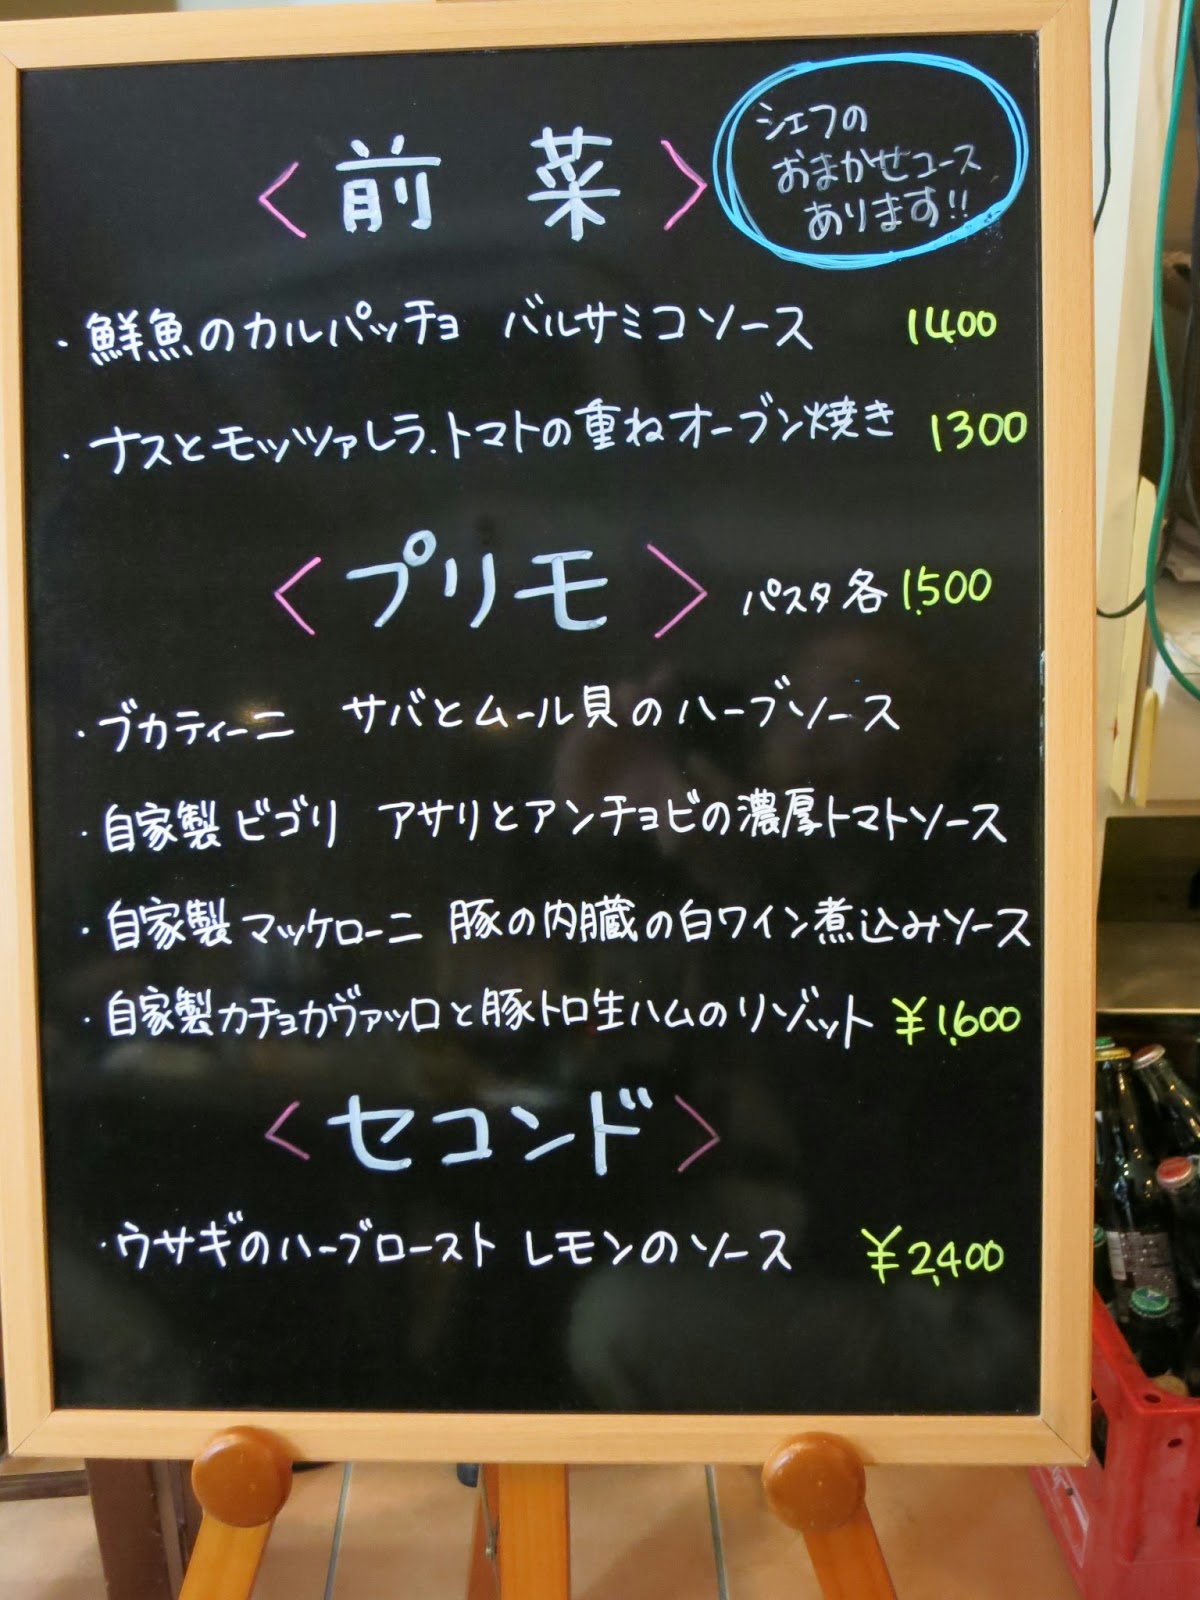 〈前菜〉
シェフの
おまかせコース
あります!!
・鮮魚のカルパッチョ バルサミコソース 1400
・ナスとモッツァレラ.トマトの重ねオーブン焼き 1300
〈プリモ〉 パスタ各1,500
・ブカティーニ サバとムール貝のハーブソース
・自家製ビゴリ アサリとアンチョビの濃厚トマトソース
・自家製マッケローニ 豚の内臓の白ワイン煮込みソース
・自家製カチョカヴァッロと豚トロ生ハムのリゾット ¥1,600
〈セコンド〉
・ウサギのハーブロースト レモンのソース ¥2,400